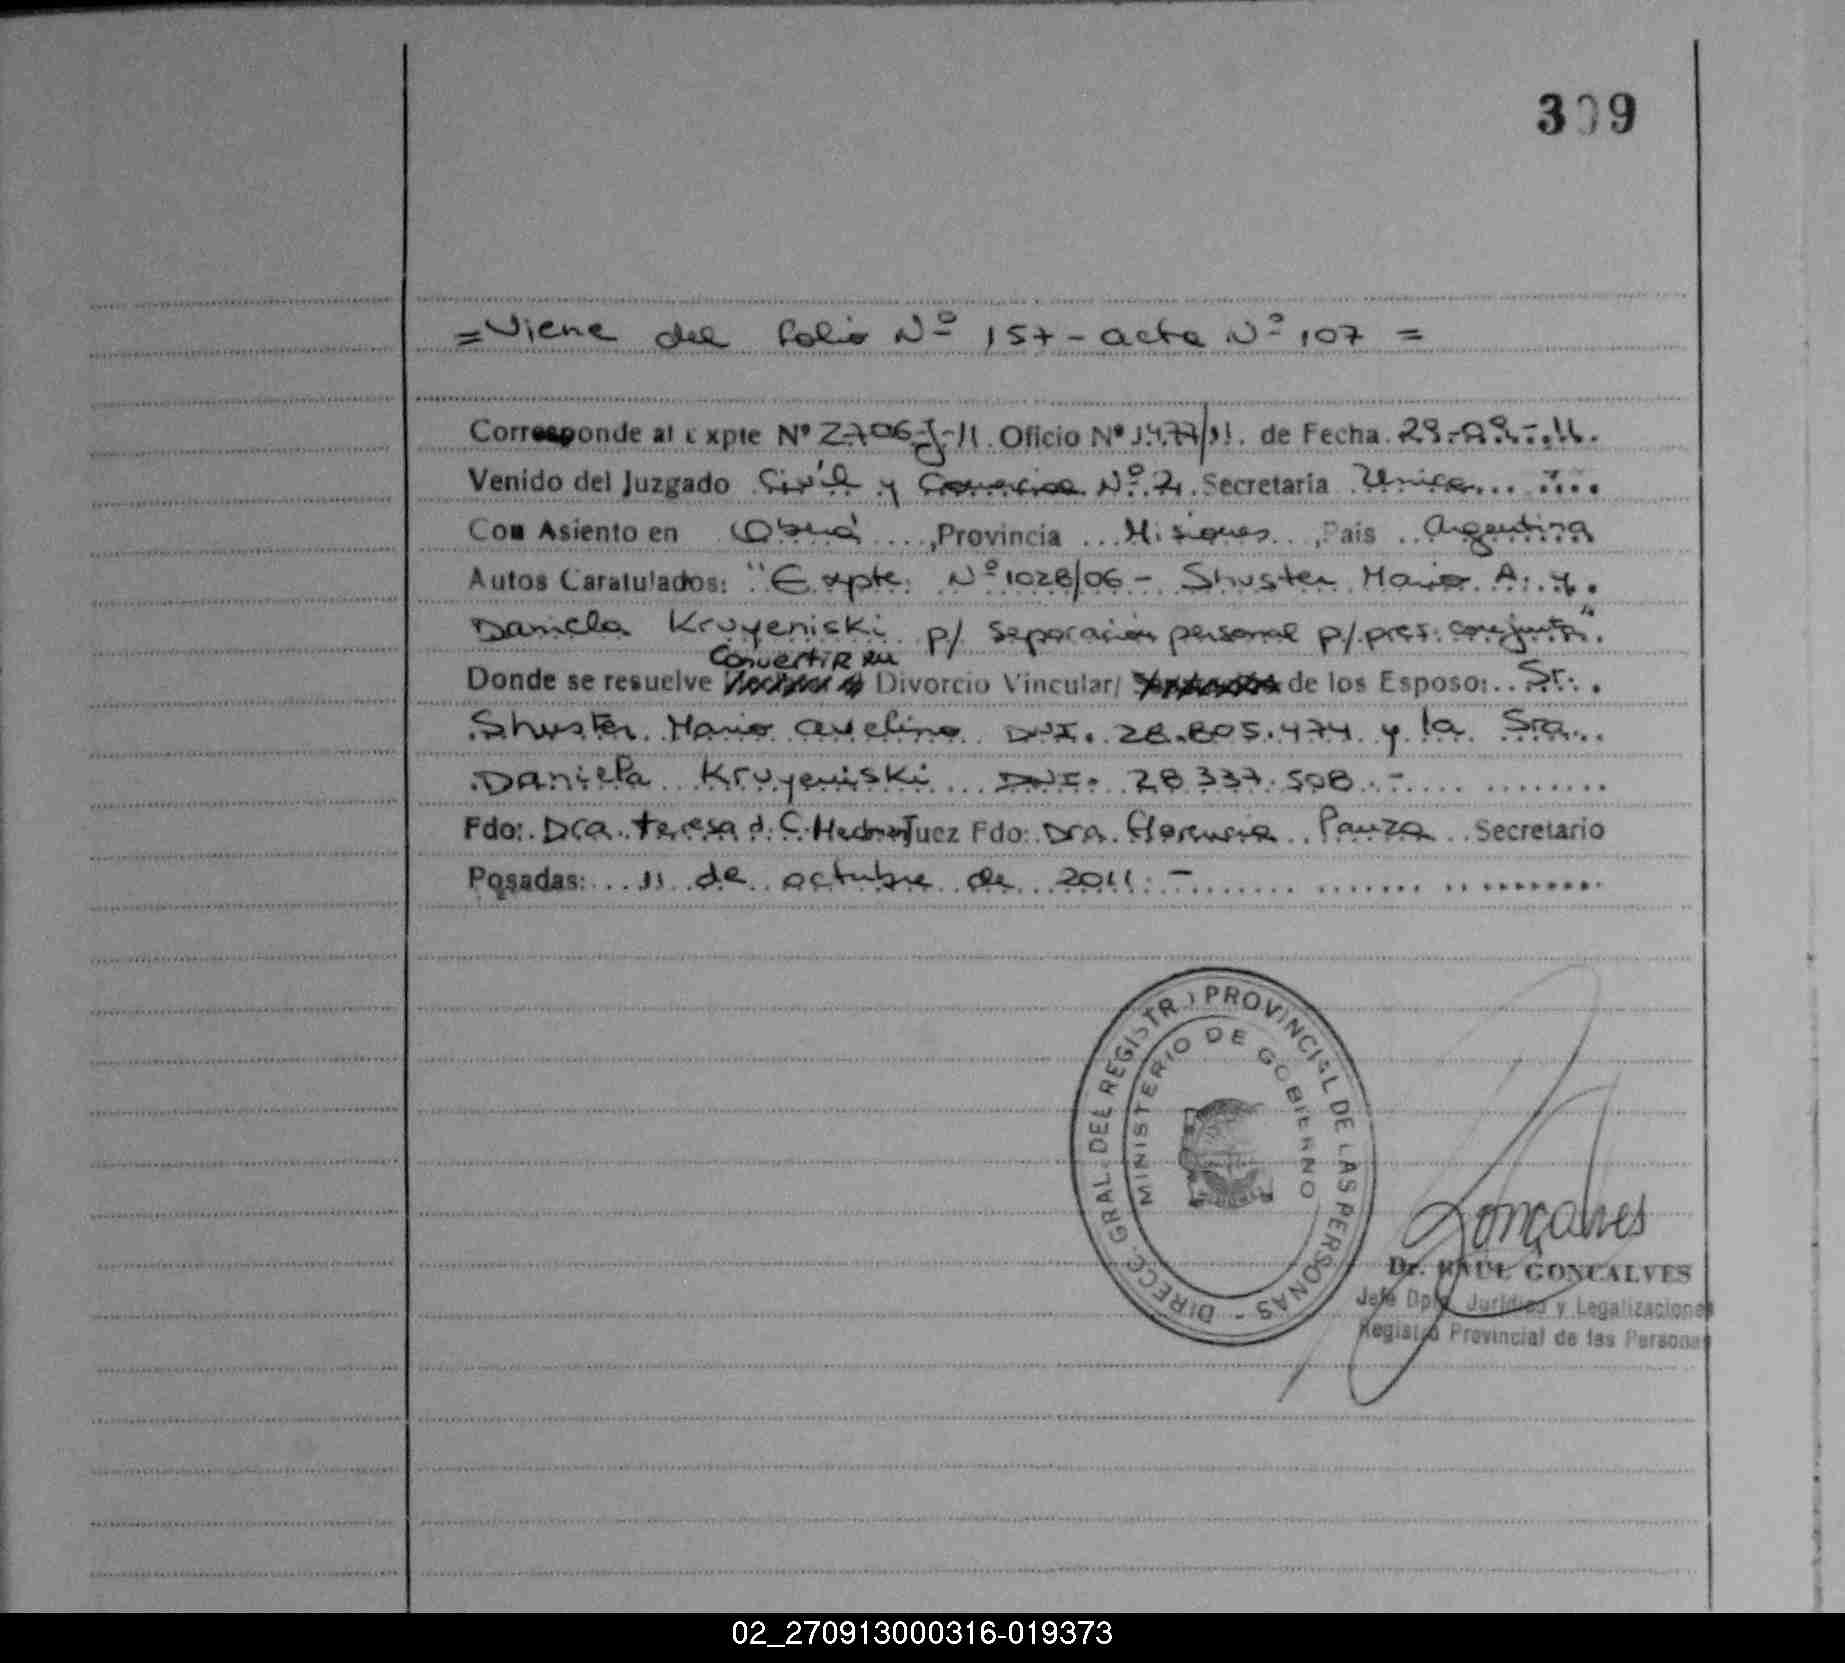 309
=Viene del folio Nº 157 - acta Nº 107 =
Corresponde al Expte Nº 2706-J-11. Oficio Nº 1477/11. de Fecha. 29-09-11.
Venido del Juzgado Civil y Comercial Nº 2. Secretaria Unica
Con Asiento en Oberá, Provincia Misiones, Pais Argentina
Autos Caratulados: "Expte. Nº 1028/06 - Shuster Mario A. y.
Daniela Kruyeniski p/ separación personal p/ pres. conjunta".
Convertir en
Donde se resuelve Divorcio Vincular/ de los Esposo: Sr.
Shuster Mario avelino DNI. 28.805.474 y la Sra.
Daniela Kruyeniski DNI. 28.337.508.-
Fdo: Dra. teresa Juez Fdo: Dra. Florencia Pauza Secretario
Posadas: 11 de octubre de 2011.-
DIRECC. GRAL. DEL REGISTRO PROVINCIAL DE LAS PERSONAS -
MINISTERIO DE GOBIERNO
Gonçalves
Dr. RAUL GONCALVES
Jefe Dpto. Juridico y Legalizaciones
Registro Provincial de las Personas
02_270913000316-019373